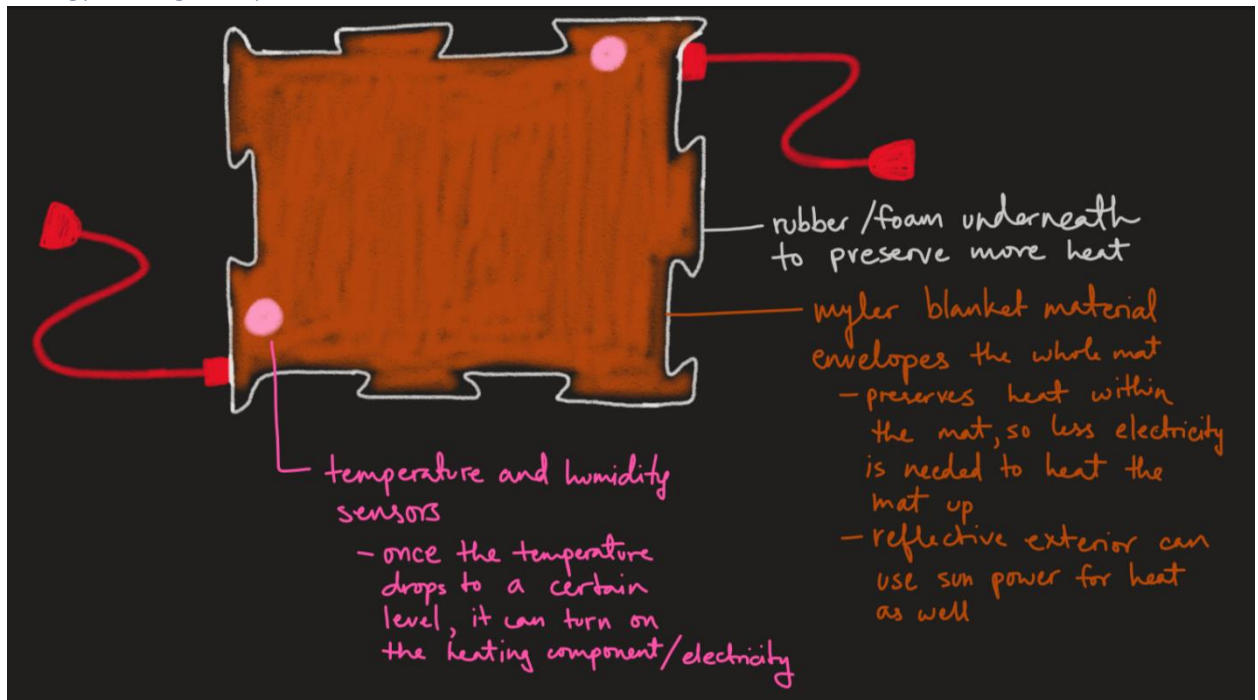 rubber/foam underneath
to preserve more heat
myler blanket material
envelopes the whole mat
- preserves heat within
the mat, so less electricity
is needed to heat the
mat up
- reflective exterior can
use sun power for heat
as well
temperature and humidity
sensors
- once the temperature
drops to a certain
level, it can turn on
the heating component/electricity